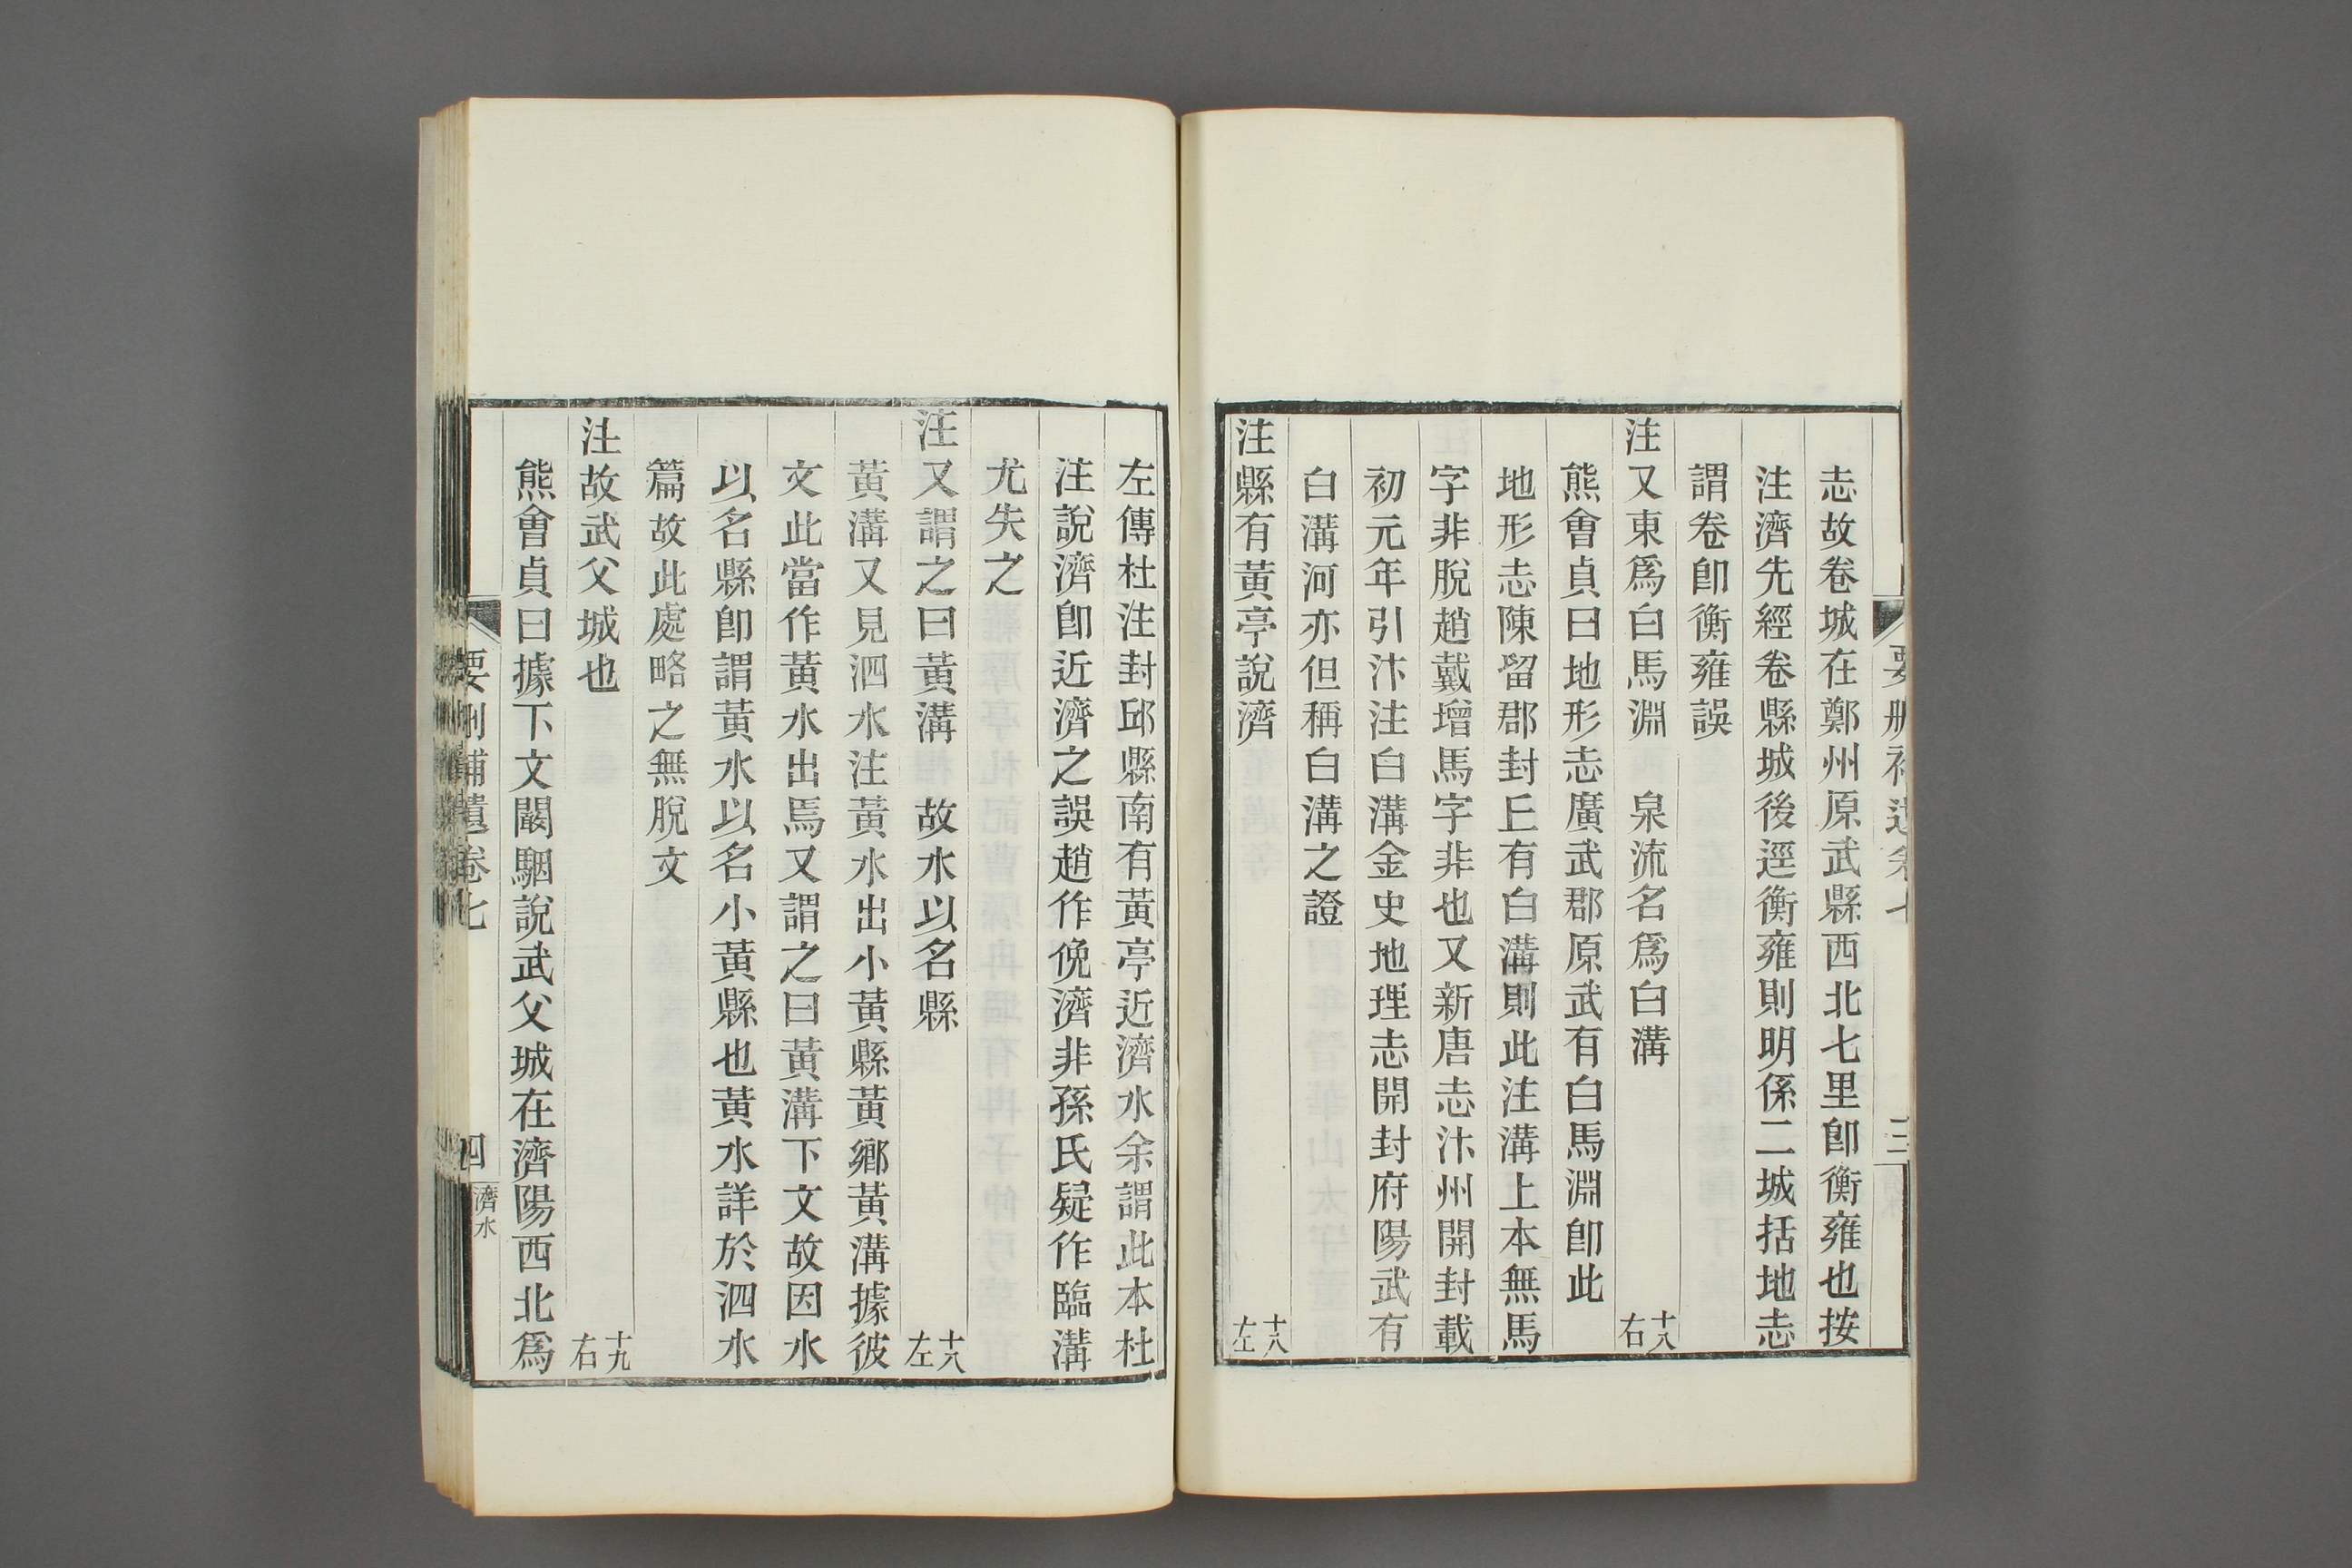 要刪補遺卷七
三
志故卷城在鄭州原武縣西北七里卽衡雍也按
注濟先經卷縣城後逕衡雍則明係二城括地志
謂卷卽衡雍誤
注又東爲白馬淵　泉流名爲白溝　十八右
熊會貞曰地形志廣武郡原武有白馬淵卽此
地形志陳留郡封丘有白溝則此注溝上本無馬
字非脫趙戴增馬字非也又新唐志汴州開封載
初元年引汴注白溝金史地理志開封府陽武有
白溝河亦但稱白溝之證
注縣有黃亭說濟　十八左
左傳杜注封邱縣南有黃亭近濟水余謂此本杜
注說濟卽近濟之誤趙作俛濟非孫氏疑作臨溝
尤失之
注又謂之曰黃溝　故水以名縣　十八左
黃溝又見泗水注黃水出小黃縣黃鄉黃溝據彼
文此當作黃水出焉又謂之曰黃溝下文故因水
以名縣卽謂黃水以名小黃縣也黃水詳於泗水
篇故此處略之無脫文
注故武父城也　十九右
熊會貞曰據下文闞駰說武父城在濟陽西北爲
要刪補遺卷七
四
濟水